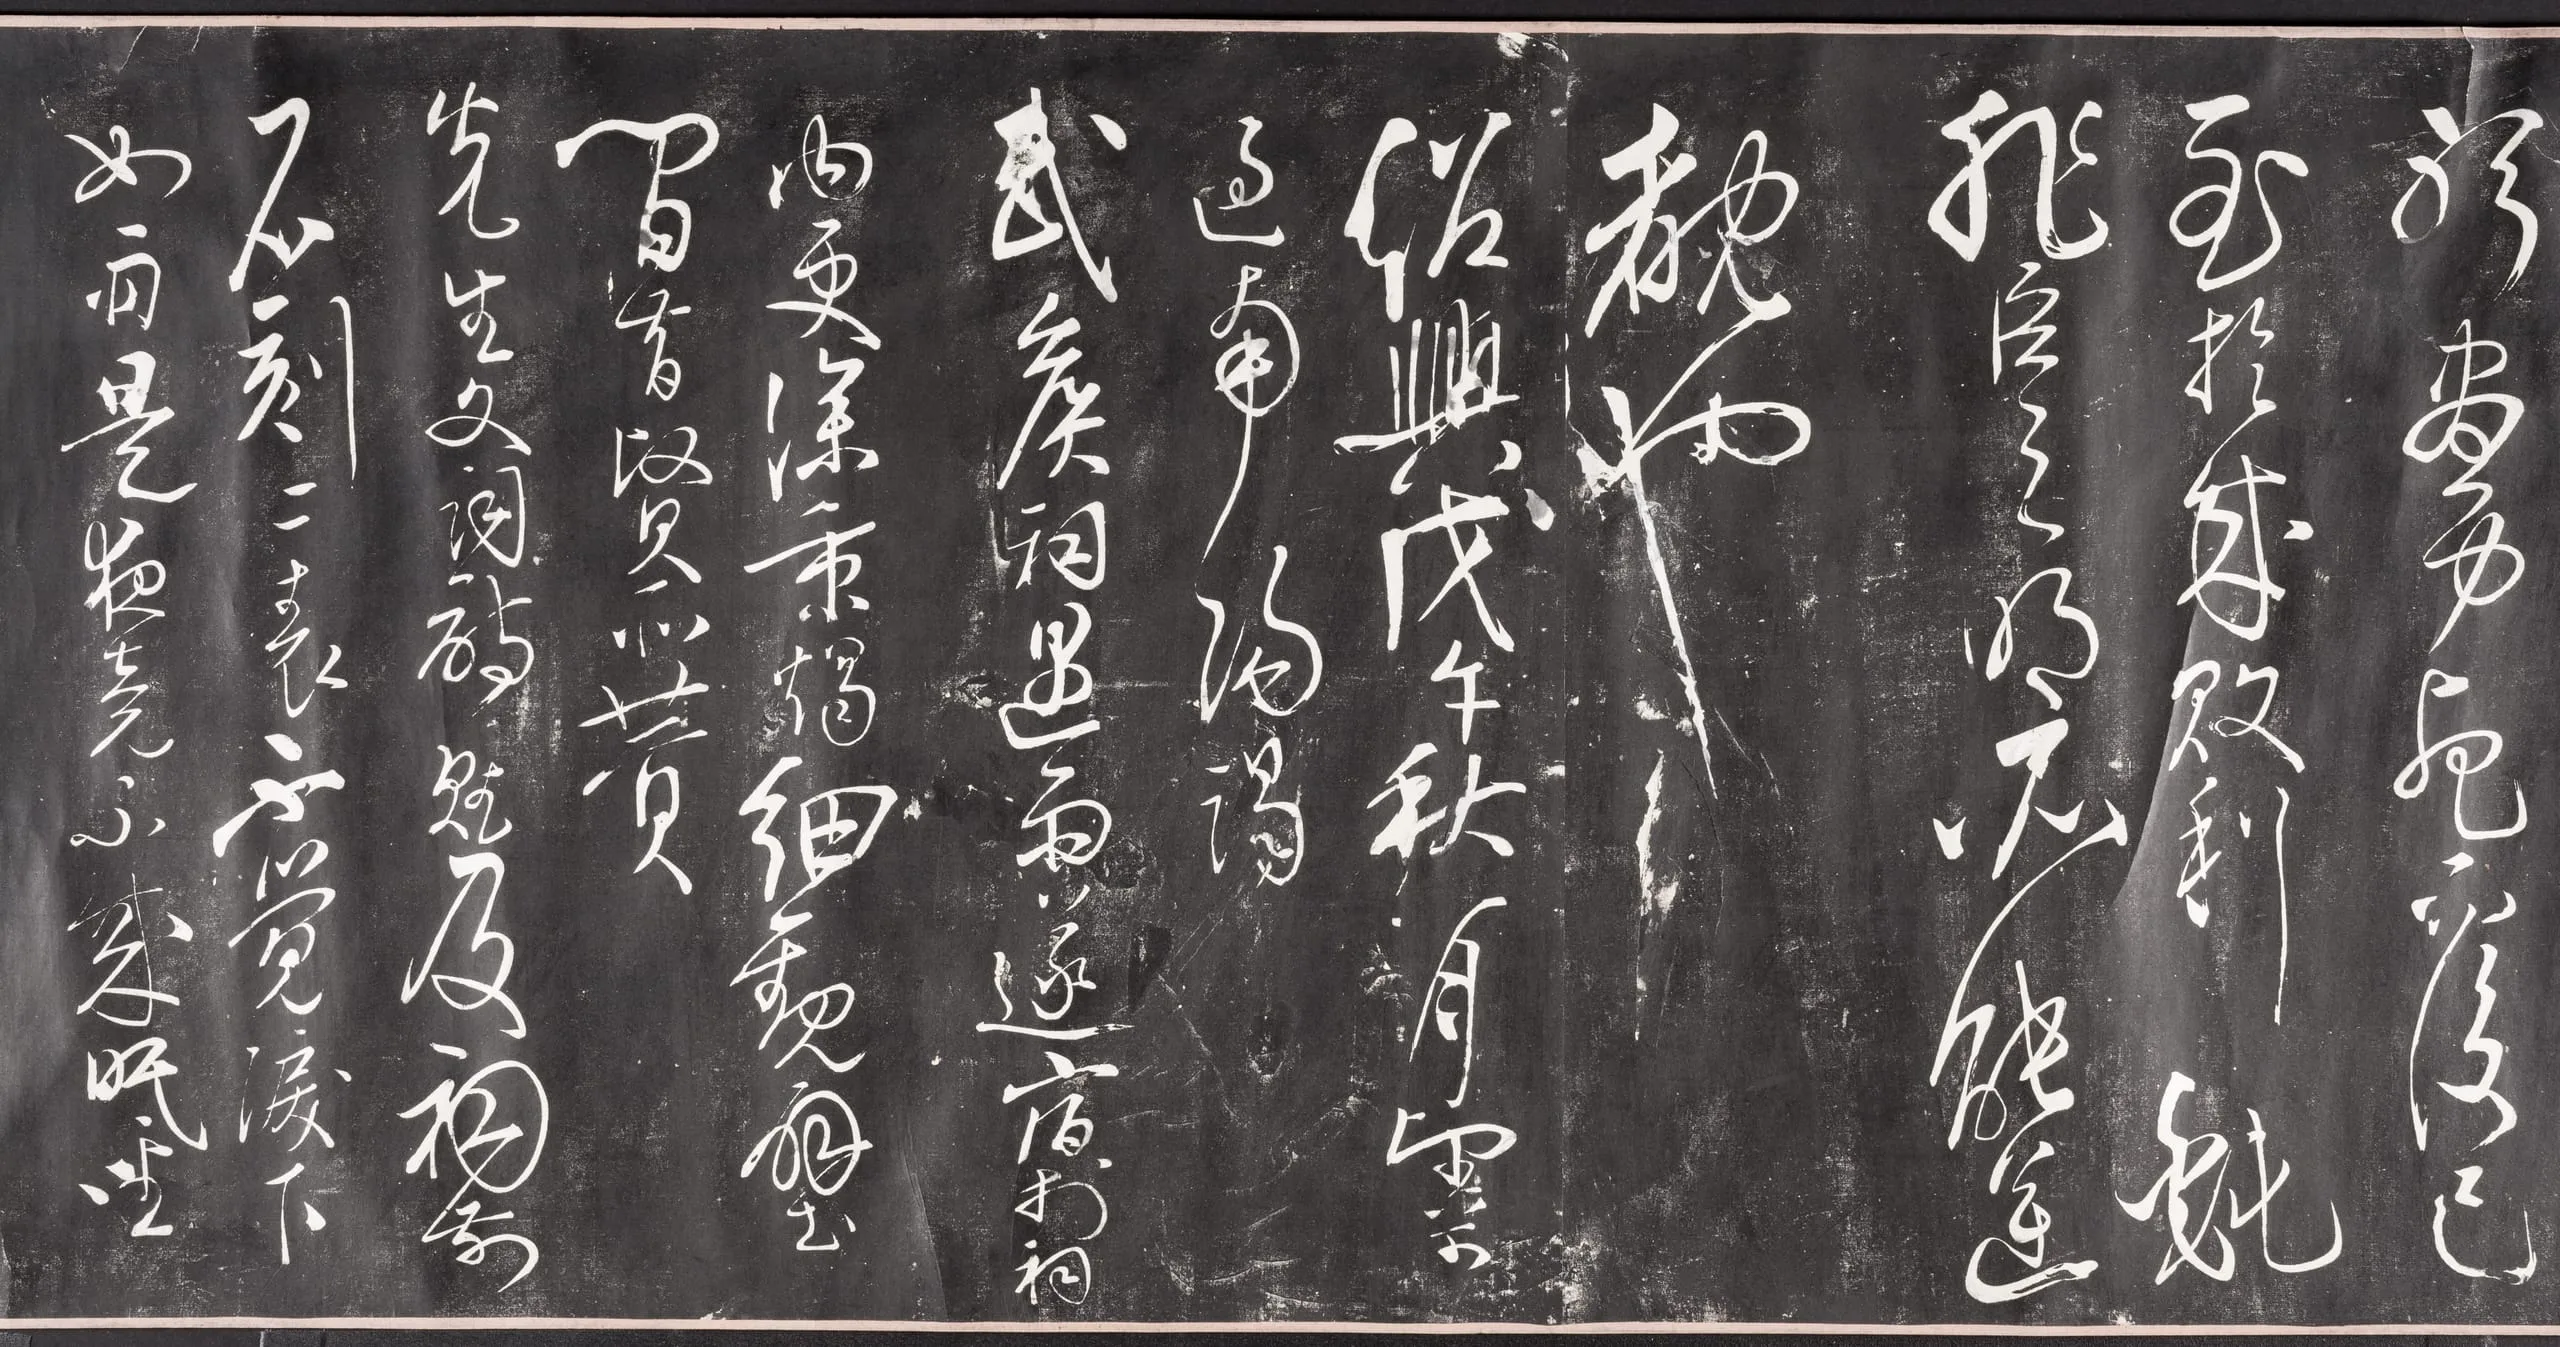 躬盡力死而後已
至於成敗利鈍
非臣之明所能逆
覩也
紹興戊午秋八月望前
過南陽謁
武侯祠遇雨遂宿於祠
內更深秉燭細觀壁
間昔賢所贊
先生文詞詩賦及祠前
石刻二表不覺淚下
如雨是夜竟不成眠坐